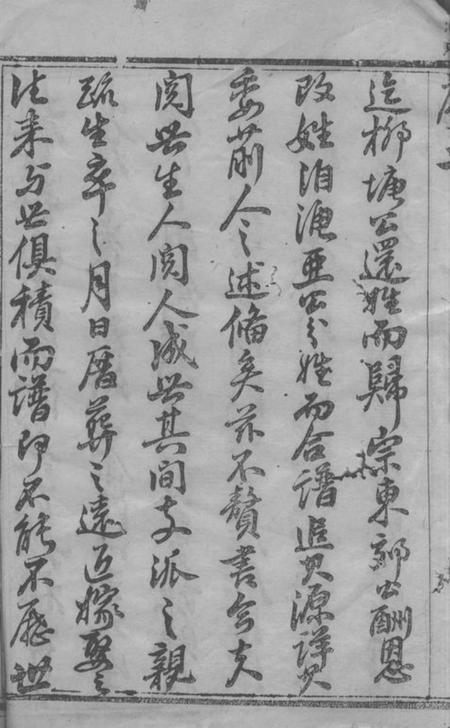 迄柳塘公還姓而歸宗東郭公酬恩
改姓洎漁亜公分姓而合譜追其源詳其
委前人之述備矣茲不贅書今夫
閱世生人閱人成世其間支派之親
疏生卒之月日厝葬之遠近嫁娶之
往来与世俱積而譜即不能不歷世